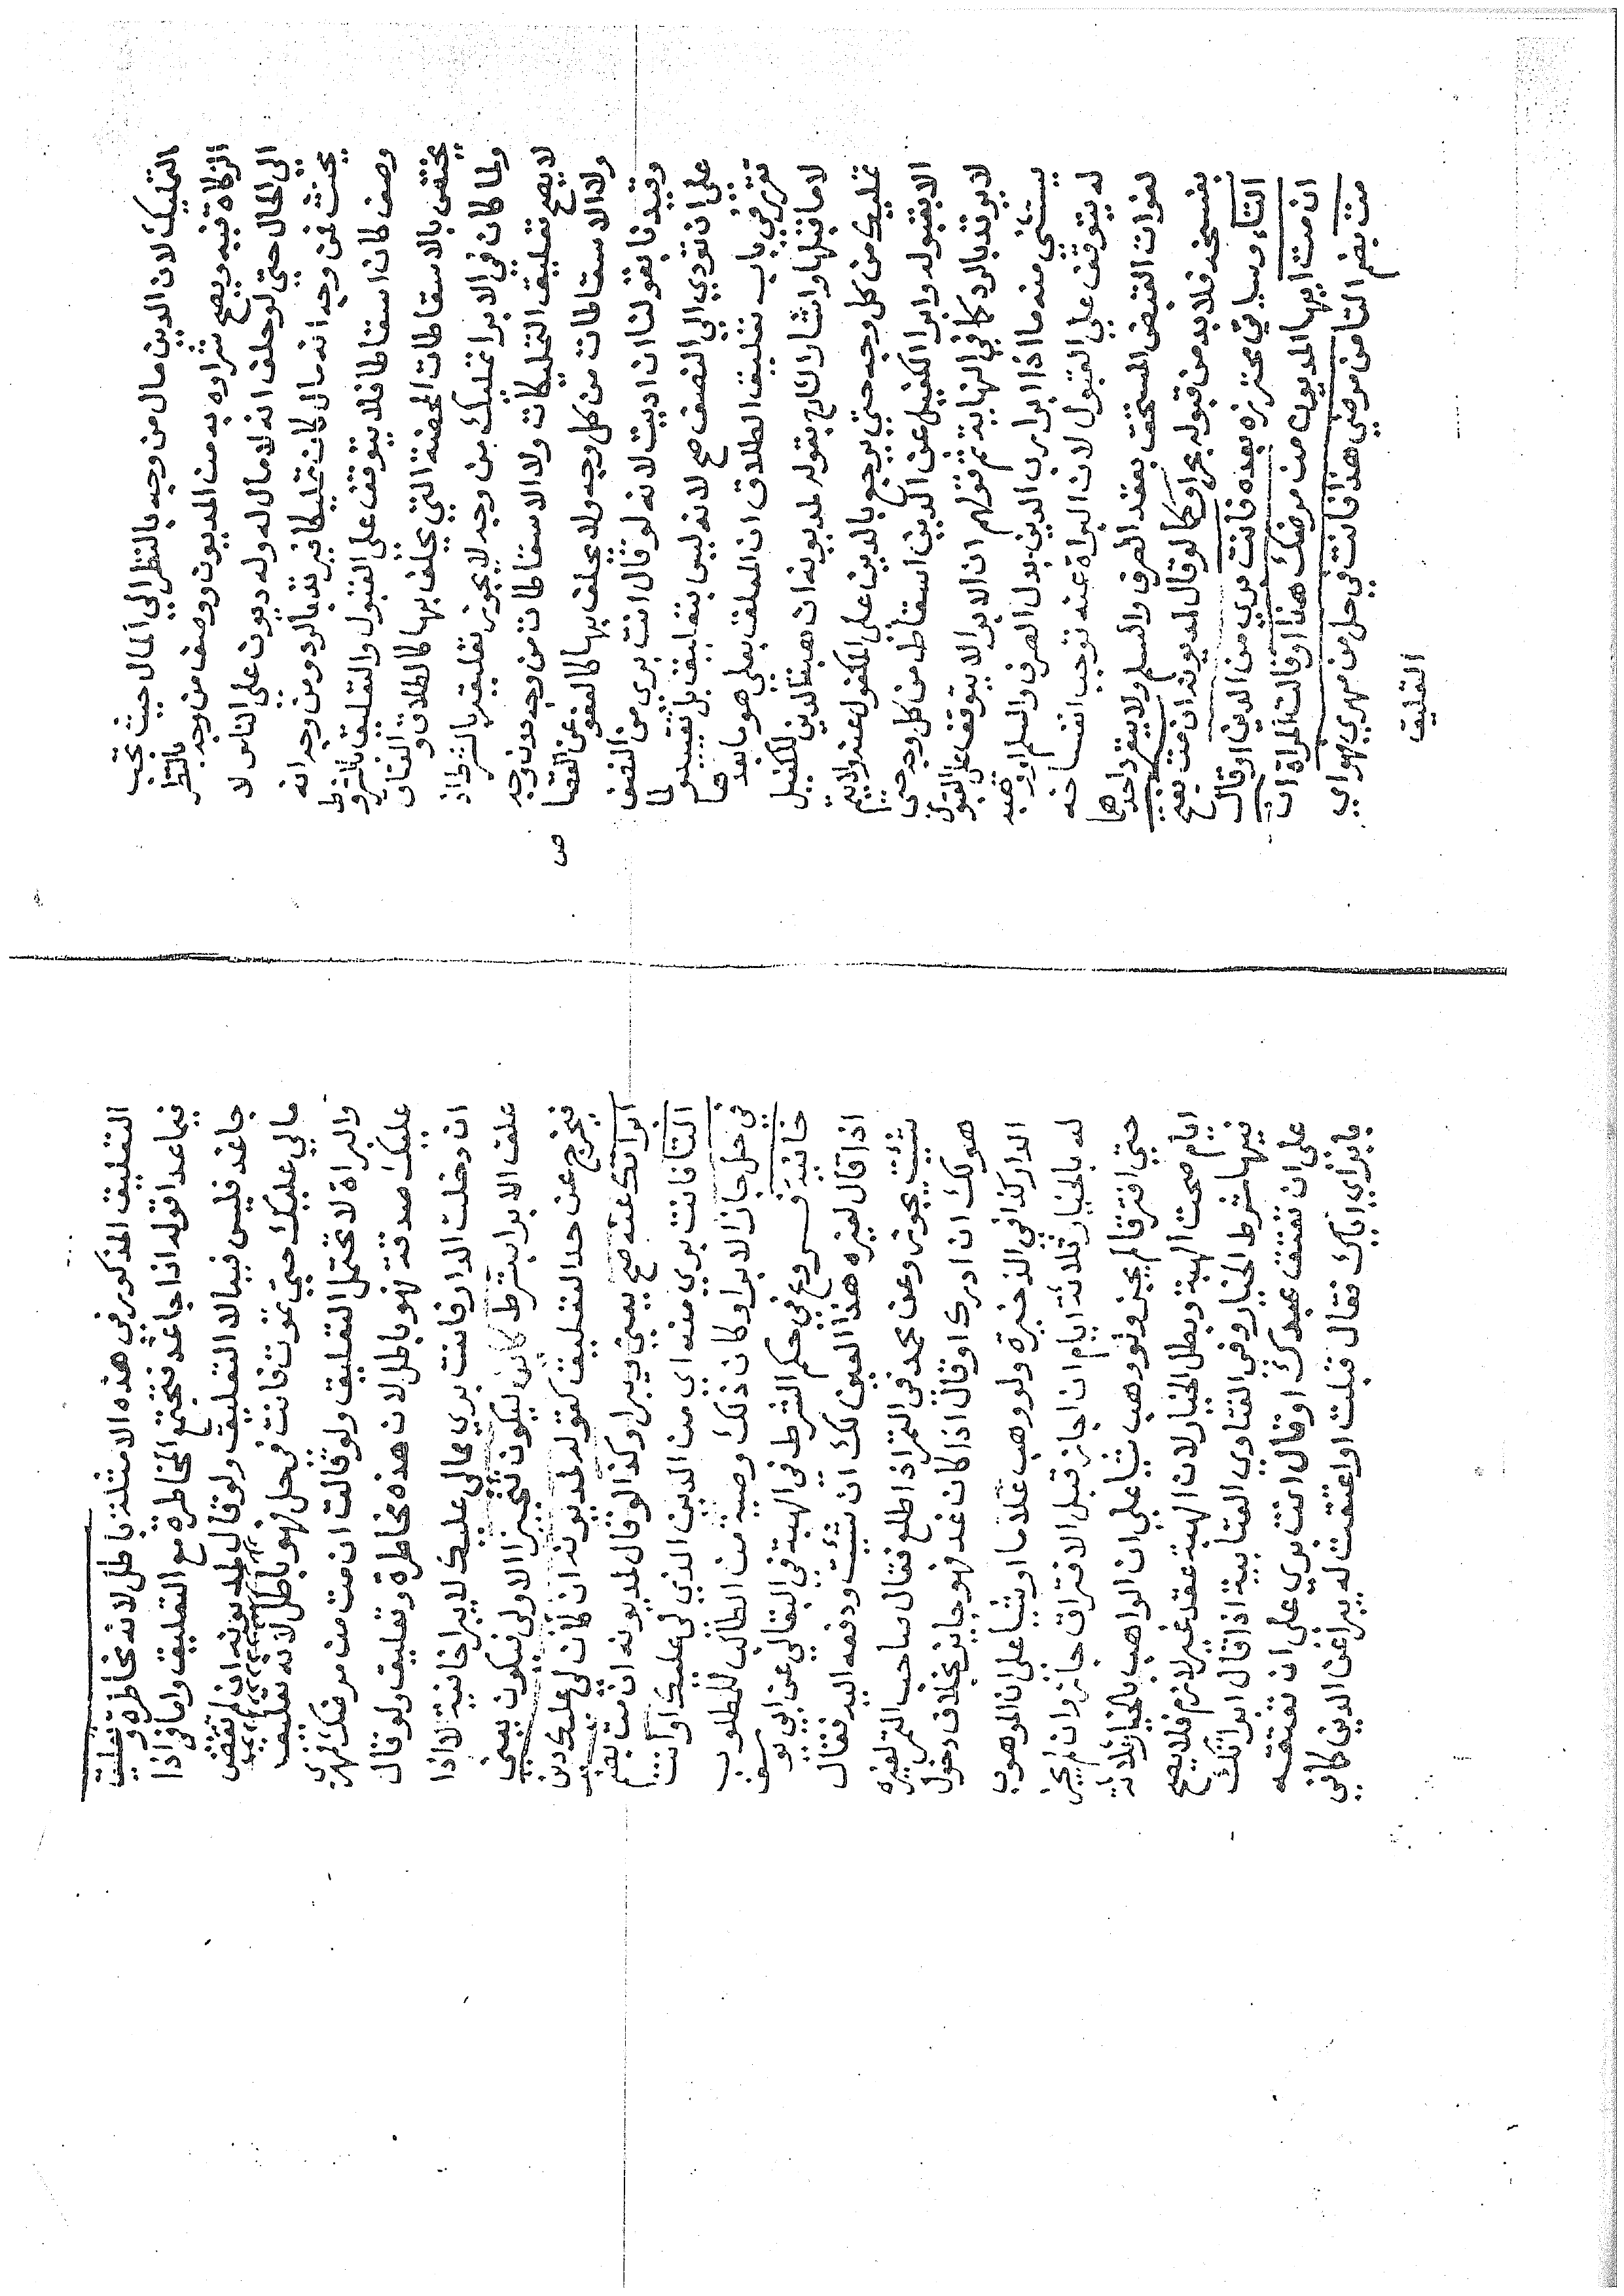 التمليك لان الدين مال من وجه بالنظر الي المال حيث تجب
الزكاة فيه ويصح شراوه به من المديون ووصف من وجه بالنظر
الي الحال حتي لو حلف انه لا مال له وله ديون علي الناس لا
يحنث فمن وجه انه مال كان تمليكا فيرتد بالرد ومن وجه انه
وصف كان اسقاطا فلا يتوقف علي القبول والتعليق بالشرط
يختص بالاسقاطات المحضة التي يحلف بها كالطلاق والعتاق
ولما كان في الابرا تمليك من وجه لا يجوز تعليقه بالشرط اذ
لا يصح تعليق التمليكات ولا الاسقاطات من وجه دون وجه
ولا الاسقاطات من كل وجه ولا يحلف بها كالعفو عن القصا
ص
وقيدنا بقولنا ان اديت لانه لو قال انت بري من النصف
علي ان تودي الي النصف صح لانه ليس بتعليق بل تقييد لما
تقرر في باب تعليق الطلاق ان المعلق بعلي هو ما بعدها
لا ما قبلها واشار الشارح بقوله لمديونه ان هبة الدين للكفيل
تمليك من كل وجه حتي يرجع بالدين علي المكفول عنه ولا يتم
الا بقبوله وابرا الكفيل عن الدين اسقاط من كل وجه حتي
لا يرتد بالرد كما في النهاية ثم قولهم ان الابرا لا يتوقف علي القبول
يستثني منه ما اذا ابرا رب الدين بدل الصرف والسلم او وهبه
له يتوقف علي القبول لان البراة عنه توجب انفساخه
لفوات القبض المستحق بعقد الصرف والسلم ولا ينفرد احدهما
بفسخه فلا بد من قبوله بحر وكما لو قال لمديونه ان مت بفتح
التاء وسياتي محترزه بعده فانت بري من الدين او قال
ان مت ايها المديون من مرضك هذا او قالت المراة ان
مت بضم التا من مرضي هذا فانت في حل من مهري فهو اي
التعليق
التعليق المذكور في هذه الامثلة باطل لانه مخاطرة وتعليق
فيما عدا قوله اذا جا غد فتجتمع المخاطرة مع التعليق واما في اذا
جا غد فليس فيه الا التعليق ولو قال لمديونه ان لم تقض
مالي عليك حتي تموت فانت في حل فهو باطل لانه تعليق
والبراة لا تحتمل التعليق ولو قالت ان مت من مرضك فمهري
عليك صدقة فهو باطل لان هذه مخاطرة وتعليق ولو قال
ان دخلت الدار فانت بري مما لي عليك لا يبرا خانية الا اذا
علق الابرا بشرط كائن ليكون تنجيزا الاولي فيكون يعني
فيخرج عن حد التعليق كقوله لمديونه ان كان لي عليك دين
ابراتك عنه صح يعني يبرا وكذا لو قال لمديونه ان مت بضم
التا فانت بري منه اي من الدين الذي لي عليك او انت
في حل جاز الابرا وكان ذلك وصية من الطالب للمطلوب
خانية فروع في حكم الشرط في الهبة في البقالي عن ابي يوسف
اذا قال لغيره هذا العين لك ان شئت ودفعه اليه فقال
شئت يجوز وعن محمد في التمر اذا اطلع فقال صاحب التمر لغيره
هو لك ان ادرك او قال اذا كان غد فهو جايز بخلاف دخول
الدار كذا في الذخيرة ولو وهب غلاما او شيا علي ان الموهوب
له بالخيار ثلاثة ايام ان اجاز قبل الافتراق جاز وان لم يجز
حتي افترقا لم يجز ولو وهب شيا علي ان الواهب بالخيار ثلاثة
ايام صحت الهبة وبطل الخيار لان الهبة عقد غير لازم فلا يصح
فيها شرط الخيار وفي الفتاوي العتابية اذا قال ابراتك
علي ان تعتق عبدك او قال انت بري علي ان تعتقه
بابراي اياك فقال قبلت او اعتقت له يبرا عن الدين كما في